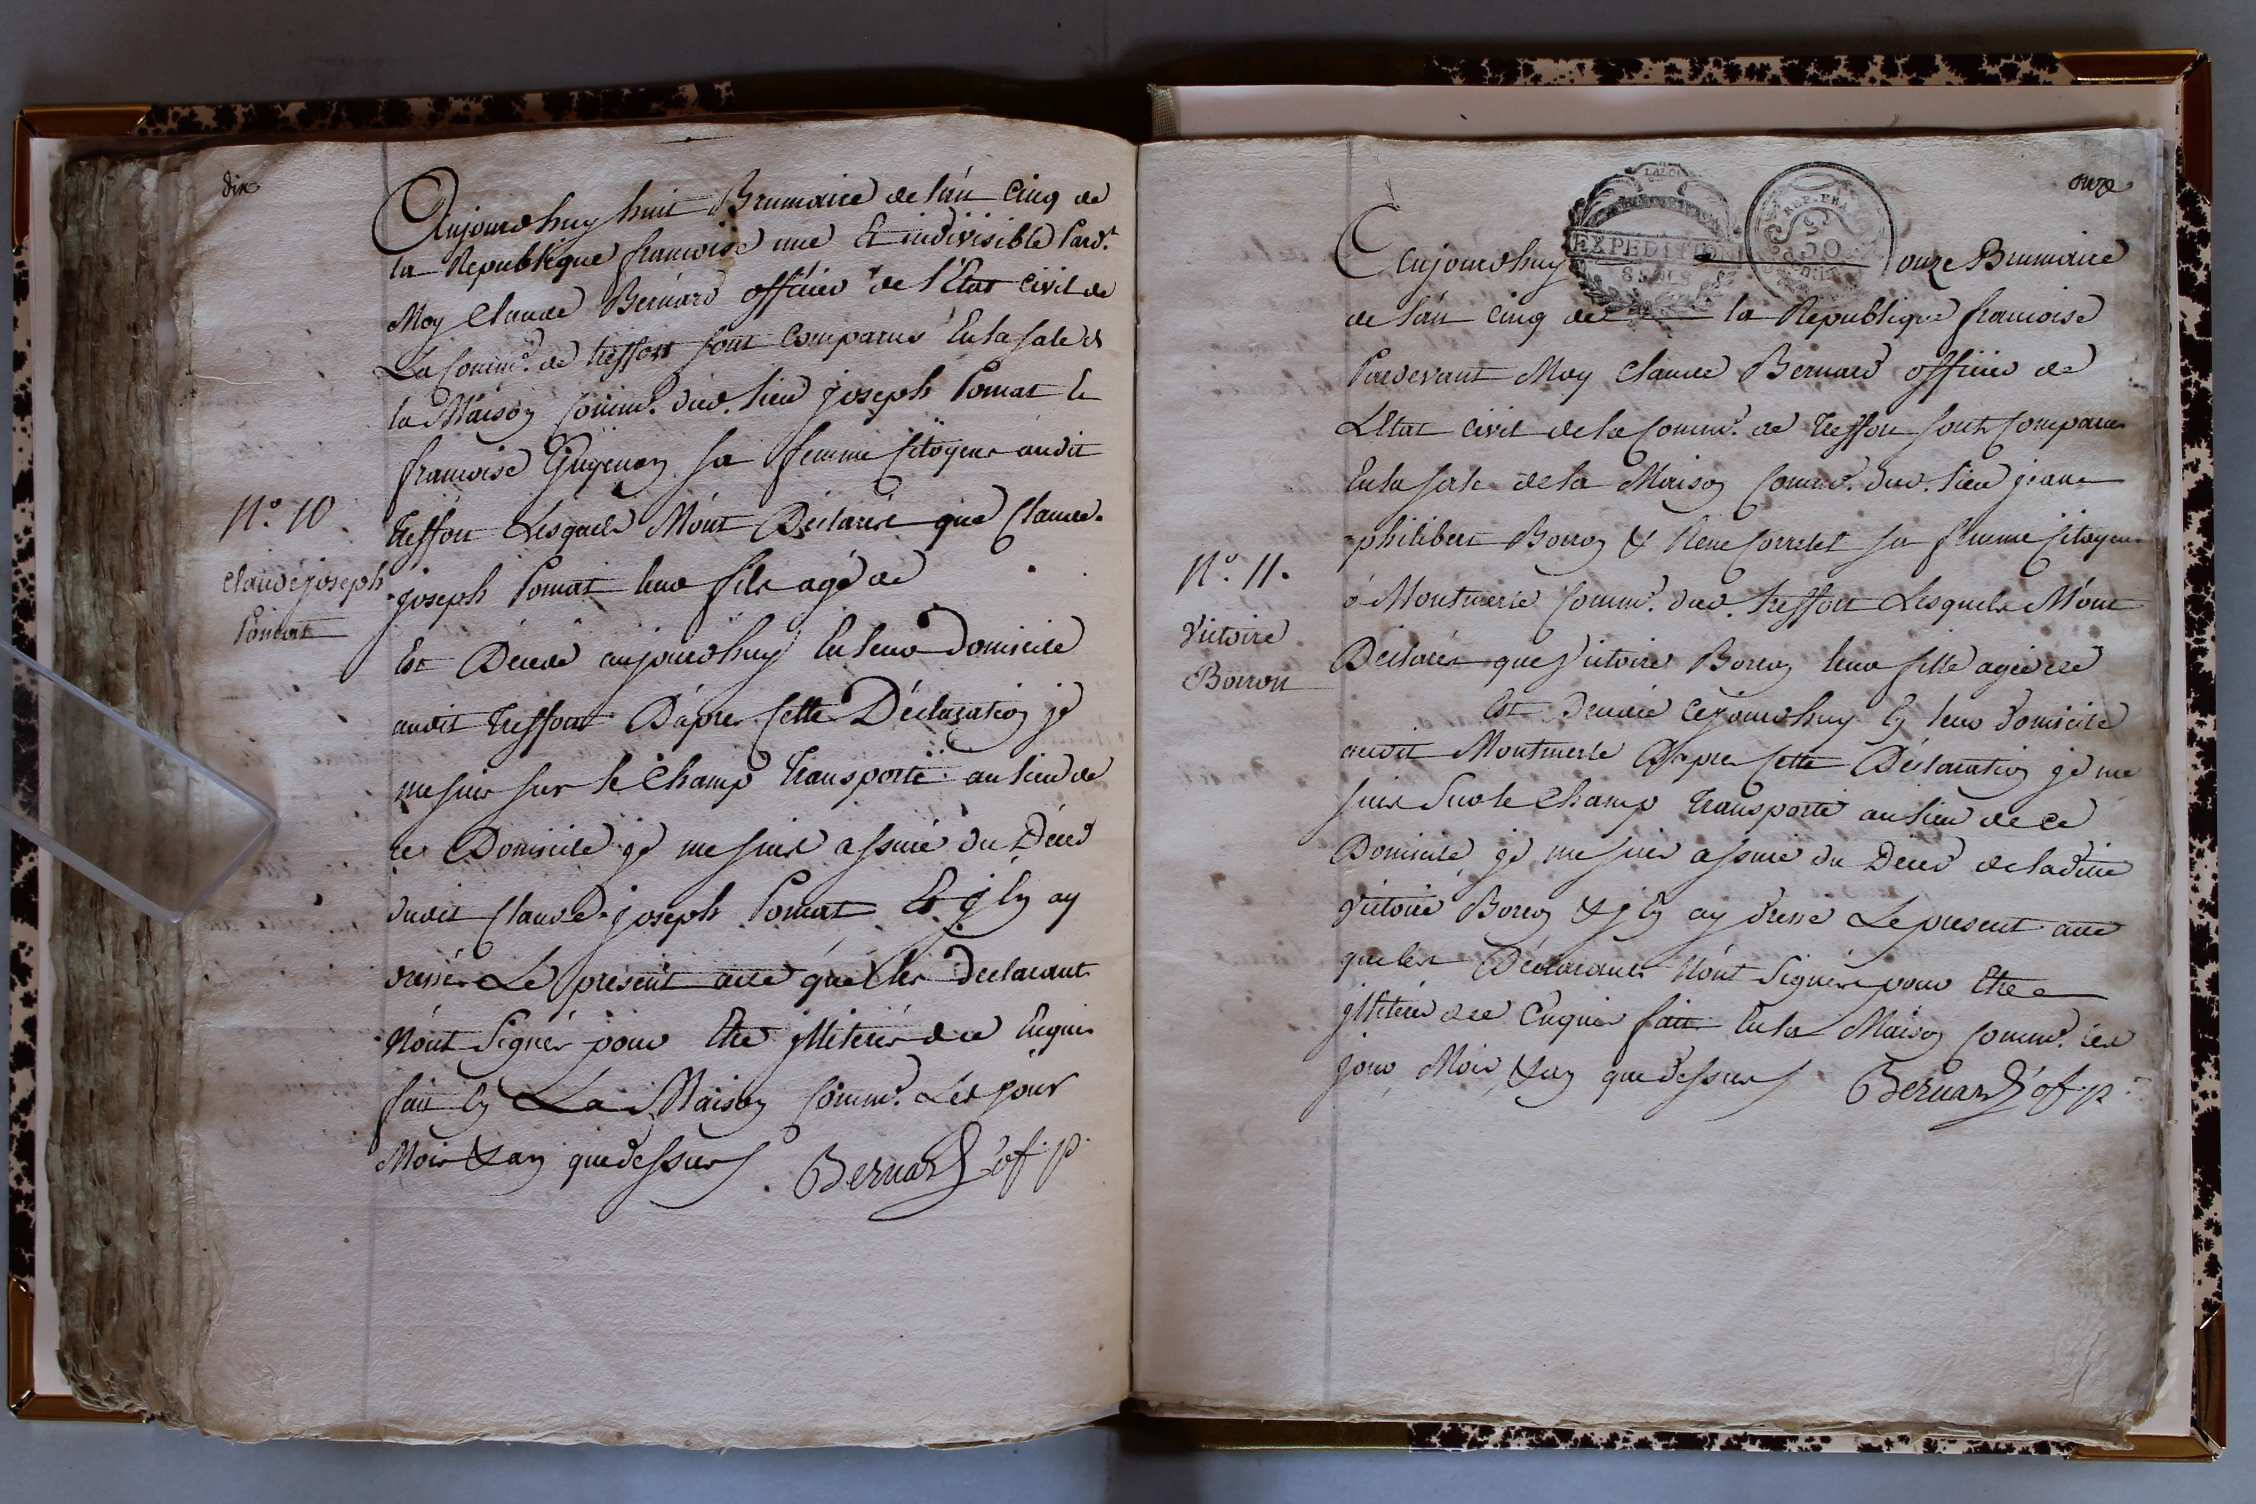 dix
Aujourdhuy huit Brumaire de l'an Cinq de
la Republique francoise une et indivisible Pard.t
Moy Claude Bernard officier de l'Etat civil de
La Comm.e de treffort sont comparus En la sale de
la Maison Comm.e dud. lieu joseph Pomat et
francoise sa femme Citoyens audit
treffort Lesquels M'ont Déclarés que Claude-
N.o 10
claude joseph
Pomat
joseph Pomat leur fils agé de
Est Décedé aujourdhuy En leur Domicile
audit treffort D'apres Cette Déclaration je
me suis sur le Champ transporté au lieu de
ce Domicile je me suis assuré du Déces
dudit Claude-joseph Pomat Et j'En ay
dressé Le present acte que les Declarants
N'ont Signés pour Etre illiterés de ce Enquis
fait En La Maison Comm.e Les jour
Mois & an que dessus Bernard of. p.
onze
LA LOI
EXPEDITION
8 SOLS
REP. FRA.
50
Cejourdhuy onze Brumaire
de l'an cinq de la Republique francoise
Pardevant Moy Claude Bernard officier de
L'Etat civil de la Comm.e de treffort sont Comparus
En la sale de la Maison Comm.e dud. lieu jean-
philibert Borron & Rene Correlet sa femme Citoyens
N.o 11.
Victoire
Borron
à Montmerle Comm.e dud. treffort Lesquels M'ont
Déclarés que Victoire Borron leur fille agée de
Est Decedée cejourdhuy En leur Domicile
audit Montmerle D'apres Cette Déclaration je me
suis Sur le Champ transporté au lieu de ce
Domicile je me suis assuré du Déces de laditte
Victoire Borron & j'En ay dressé Le present acte
que les Déclarants N'ont Signés pour Etre
illiterés de ce Enquis fait En la Maison Comm.e les
jour Mois & an que dessus Bernard of. p.